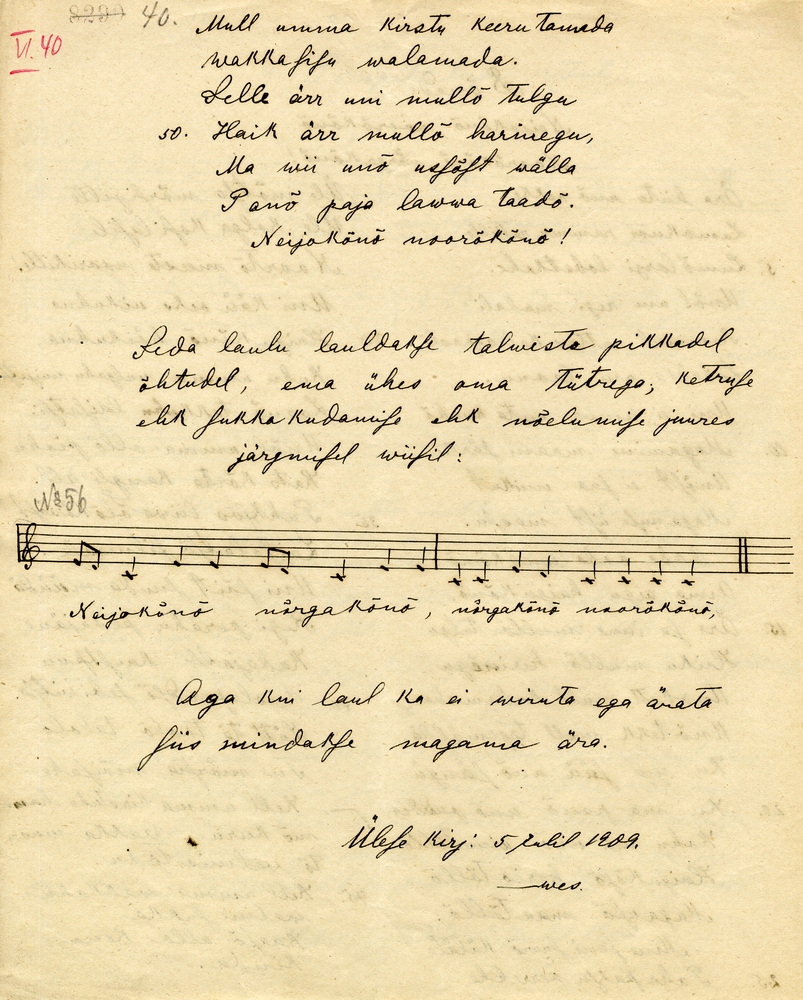 40.
VI. 40
Mull umma kirstu keerutamada
wakka sisu walamada.
Selle ärr uni mullõ tulgu
50. Haik ärr mullõ harinegu,
Ma wii unõ ussõst wälla
Panõ paja lawwa taadõ.
Neijokõnõ noorõkõnõ!
Seda laulu lauldakse talwiste pikkadel
õhtudel, ema ühes oma tütrega; ketruse
ehk sukka kudamise ehk nõelumise juures
järgmisel wiisil:
№ 56
Neijokõnõ nõrgakõnõ, nõrgakõnõ noorõkõnõ,
Aga kui laul ka ei wiruta ega ärata
siis mindakse magama ära.
Ülesse kirj: 5 Julil 1909.